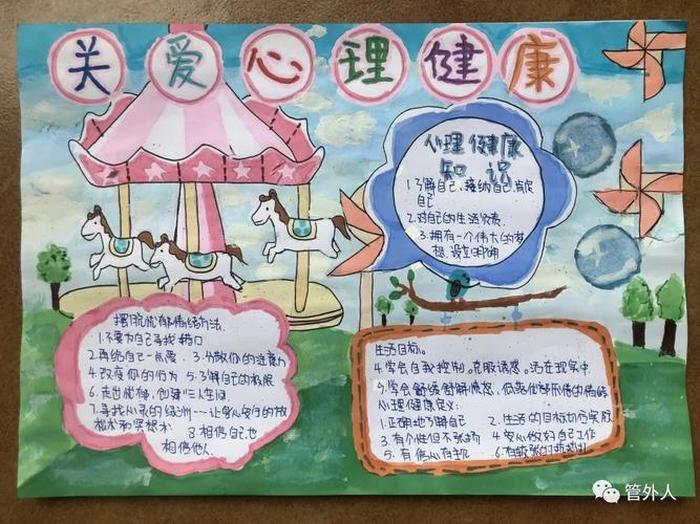 关爱心理健康
心理健康
知识
1.了解自己,接纳自己,肯定
自己
2.对自己的生活负责
3.拥有一个伟大的梦
想,设立明确
摆脱忧郁情绪方法
1.不要为自己寻找借口
2.再给自己一点爱 3.分散你的注意力
4.改变你的行为 5.了解自己的极限
6.走出忧郁,创建 人生间
7.寻找心灵的绿洲---让身心安宁的放
松术和冥想术 8.相信自己也
相信他人
生活目标。
4.学会自我控制。克服诱惑。活在现实中
5.学会舒缓 愤怒,低落忧郁 的情绪
心理健康定义:
1.正确地了解自己 2.生活的目标切合实际
3.有个性但不张扬 4.安心做好自己工作
5.有信心有主见 6.
管外人